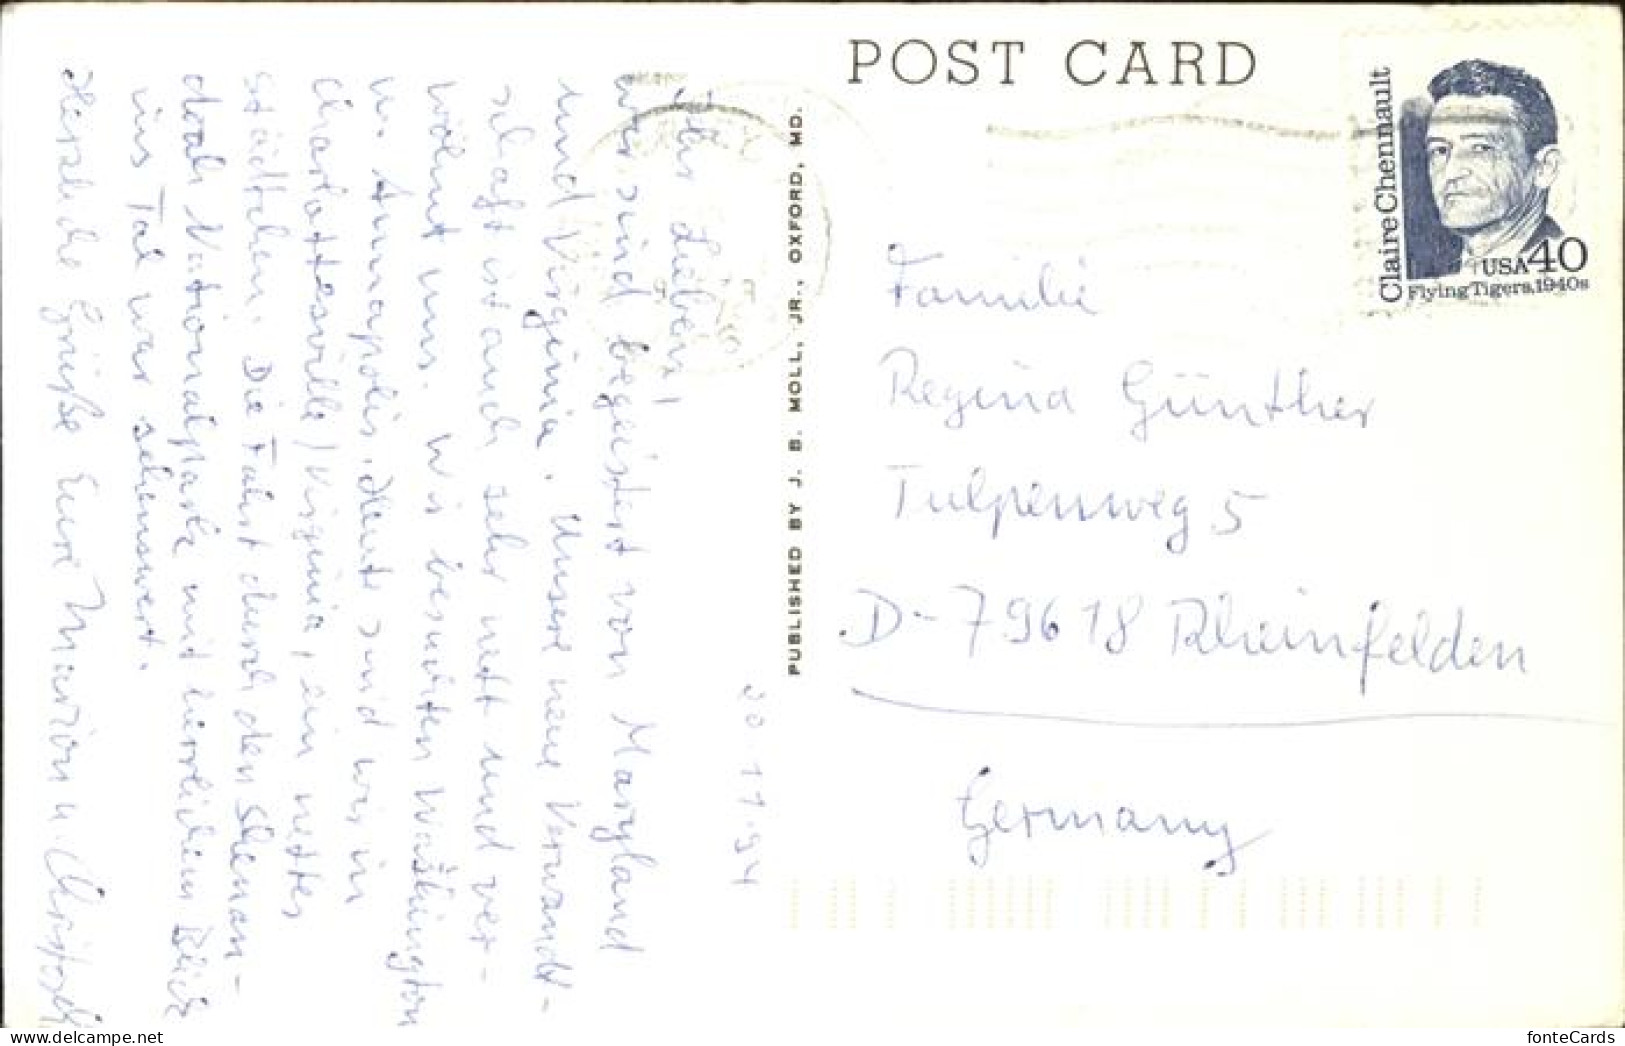 POST CARD
Claire Chennault
USA 40
Flying Tigers, 1940s
PUBLISHED BY J. B. MOLL, JR., OXFORD, MD.
20.11.94
Ihr Lieben!
wir sind begeistert von Maryland
und Virginia. Unsere neue Verwandt-
schaft ist auch sehr nett und ver-
wöhnt uns. Wir besuchten Washington
u. Annapolis. Heute sind wir in
Charlottesville/Virginia, ein nettes
Städtchen. Die Fahrt durch den Shenan-
doah Nationalpark mit herrlichem Blick
ins Tal war sehenswert.
Herzliche Grüße Eure Marion u. Christoph
Familie
Regina Günther
Tulpenweg 5
D-79618 Rheinfelden
Germany
fonteCards